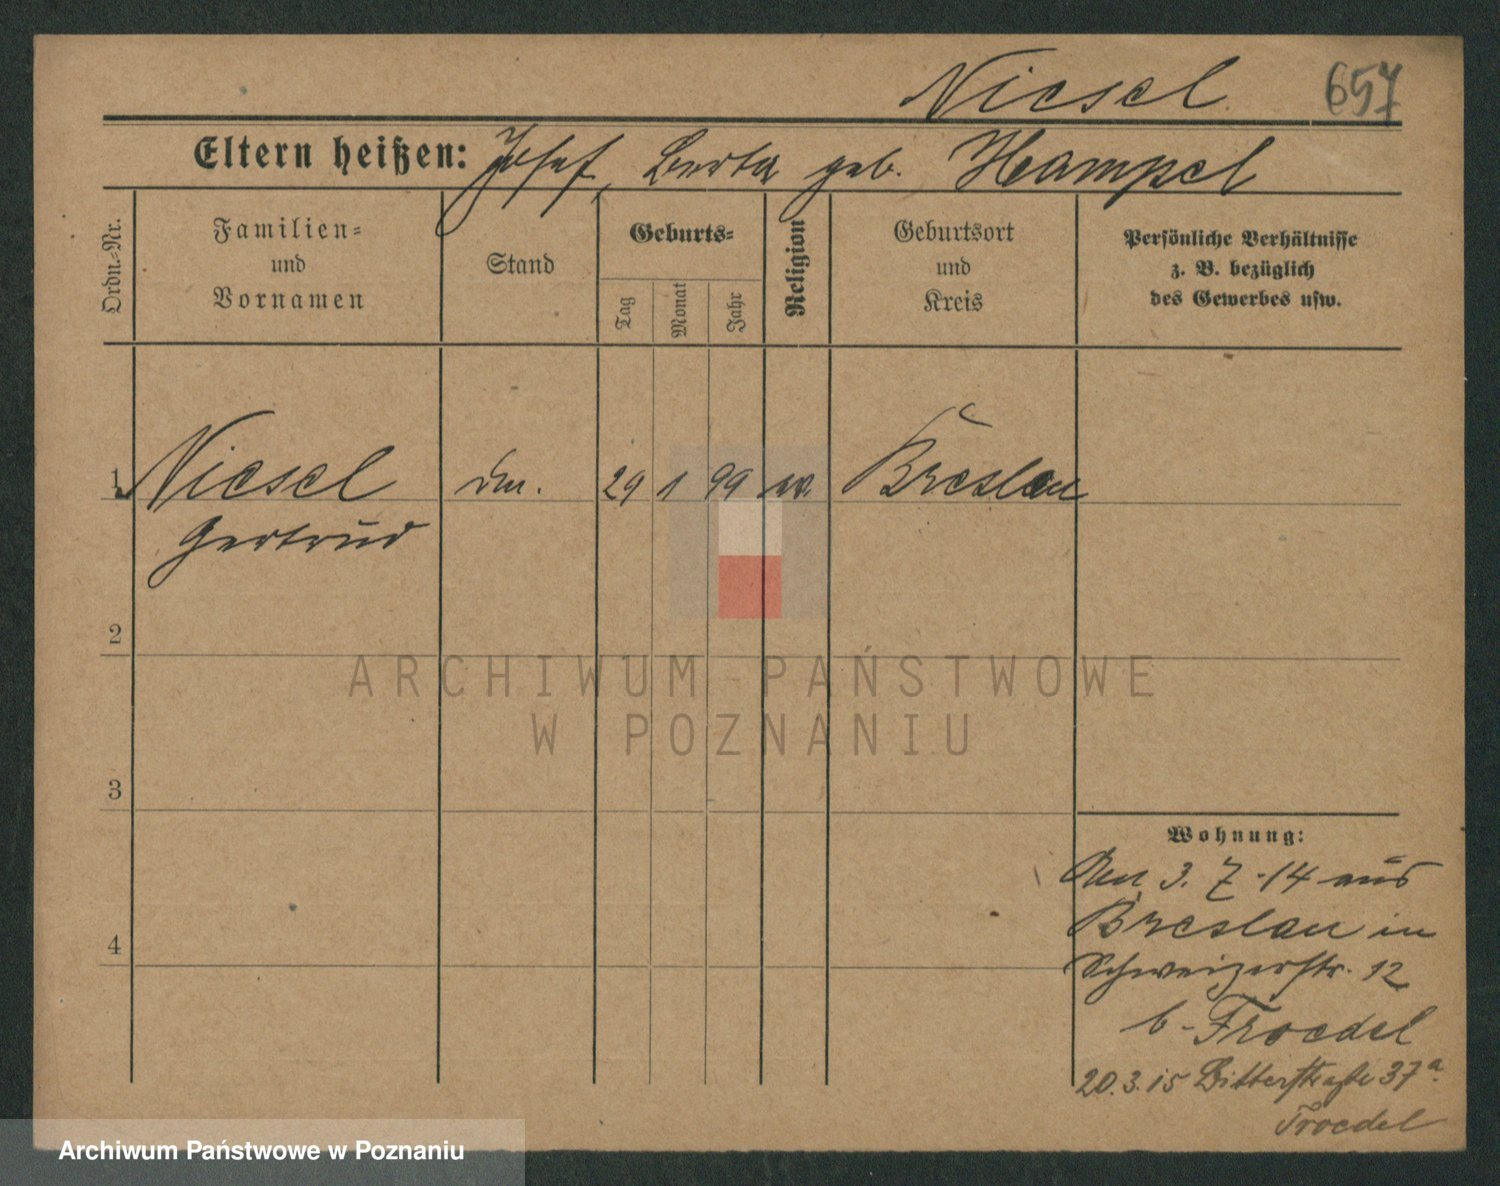 Niesel 657
Eltern heißen: Josef, Berta geb. Hampel
Ordn.-Nr.
Familien-
und
Vornamen
Stand
Geburts-
Tag
Monat
Jahr
Religion
Geburtsort
und
Kreis
Persönliche Verhältnisse
z. B. bezüglich
des Gewerbes usw.
1 Niesel 29 1 99 ev. Breslau
Gertrud
2
3
4
Wohnung:
Den 3. 7. 14 aus
Breslau in
Schweizerstr. 12
b. Troedel
20.3.15 Bitterstraße 37a.
Troedel
ARCHIWUM PAŃSTWOWE
W POZNANIU
Archiwum Państwowe w Poznaniu